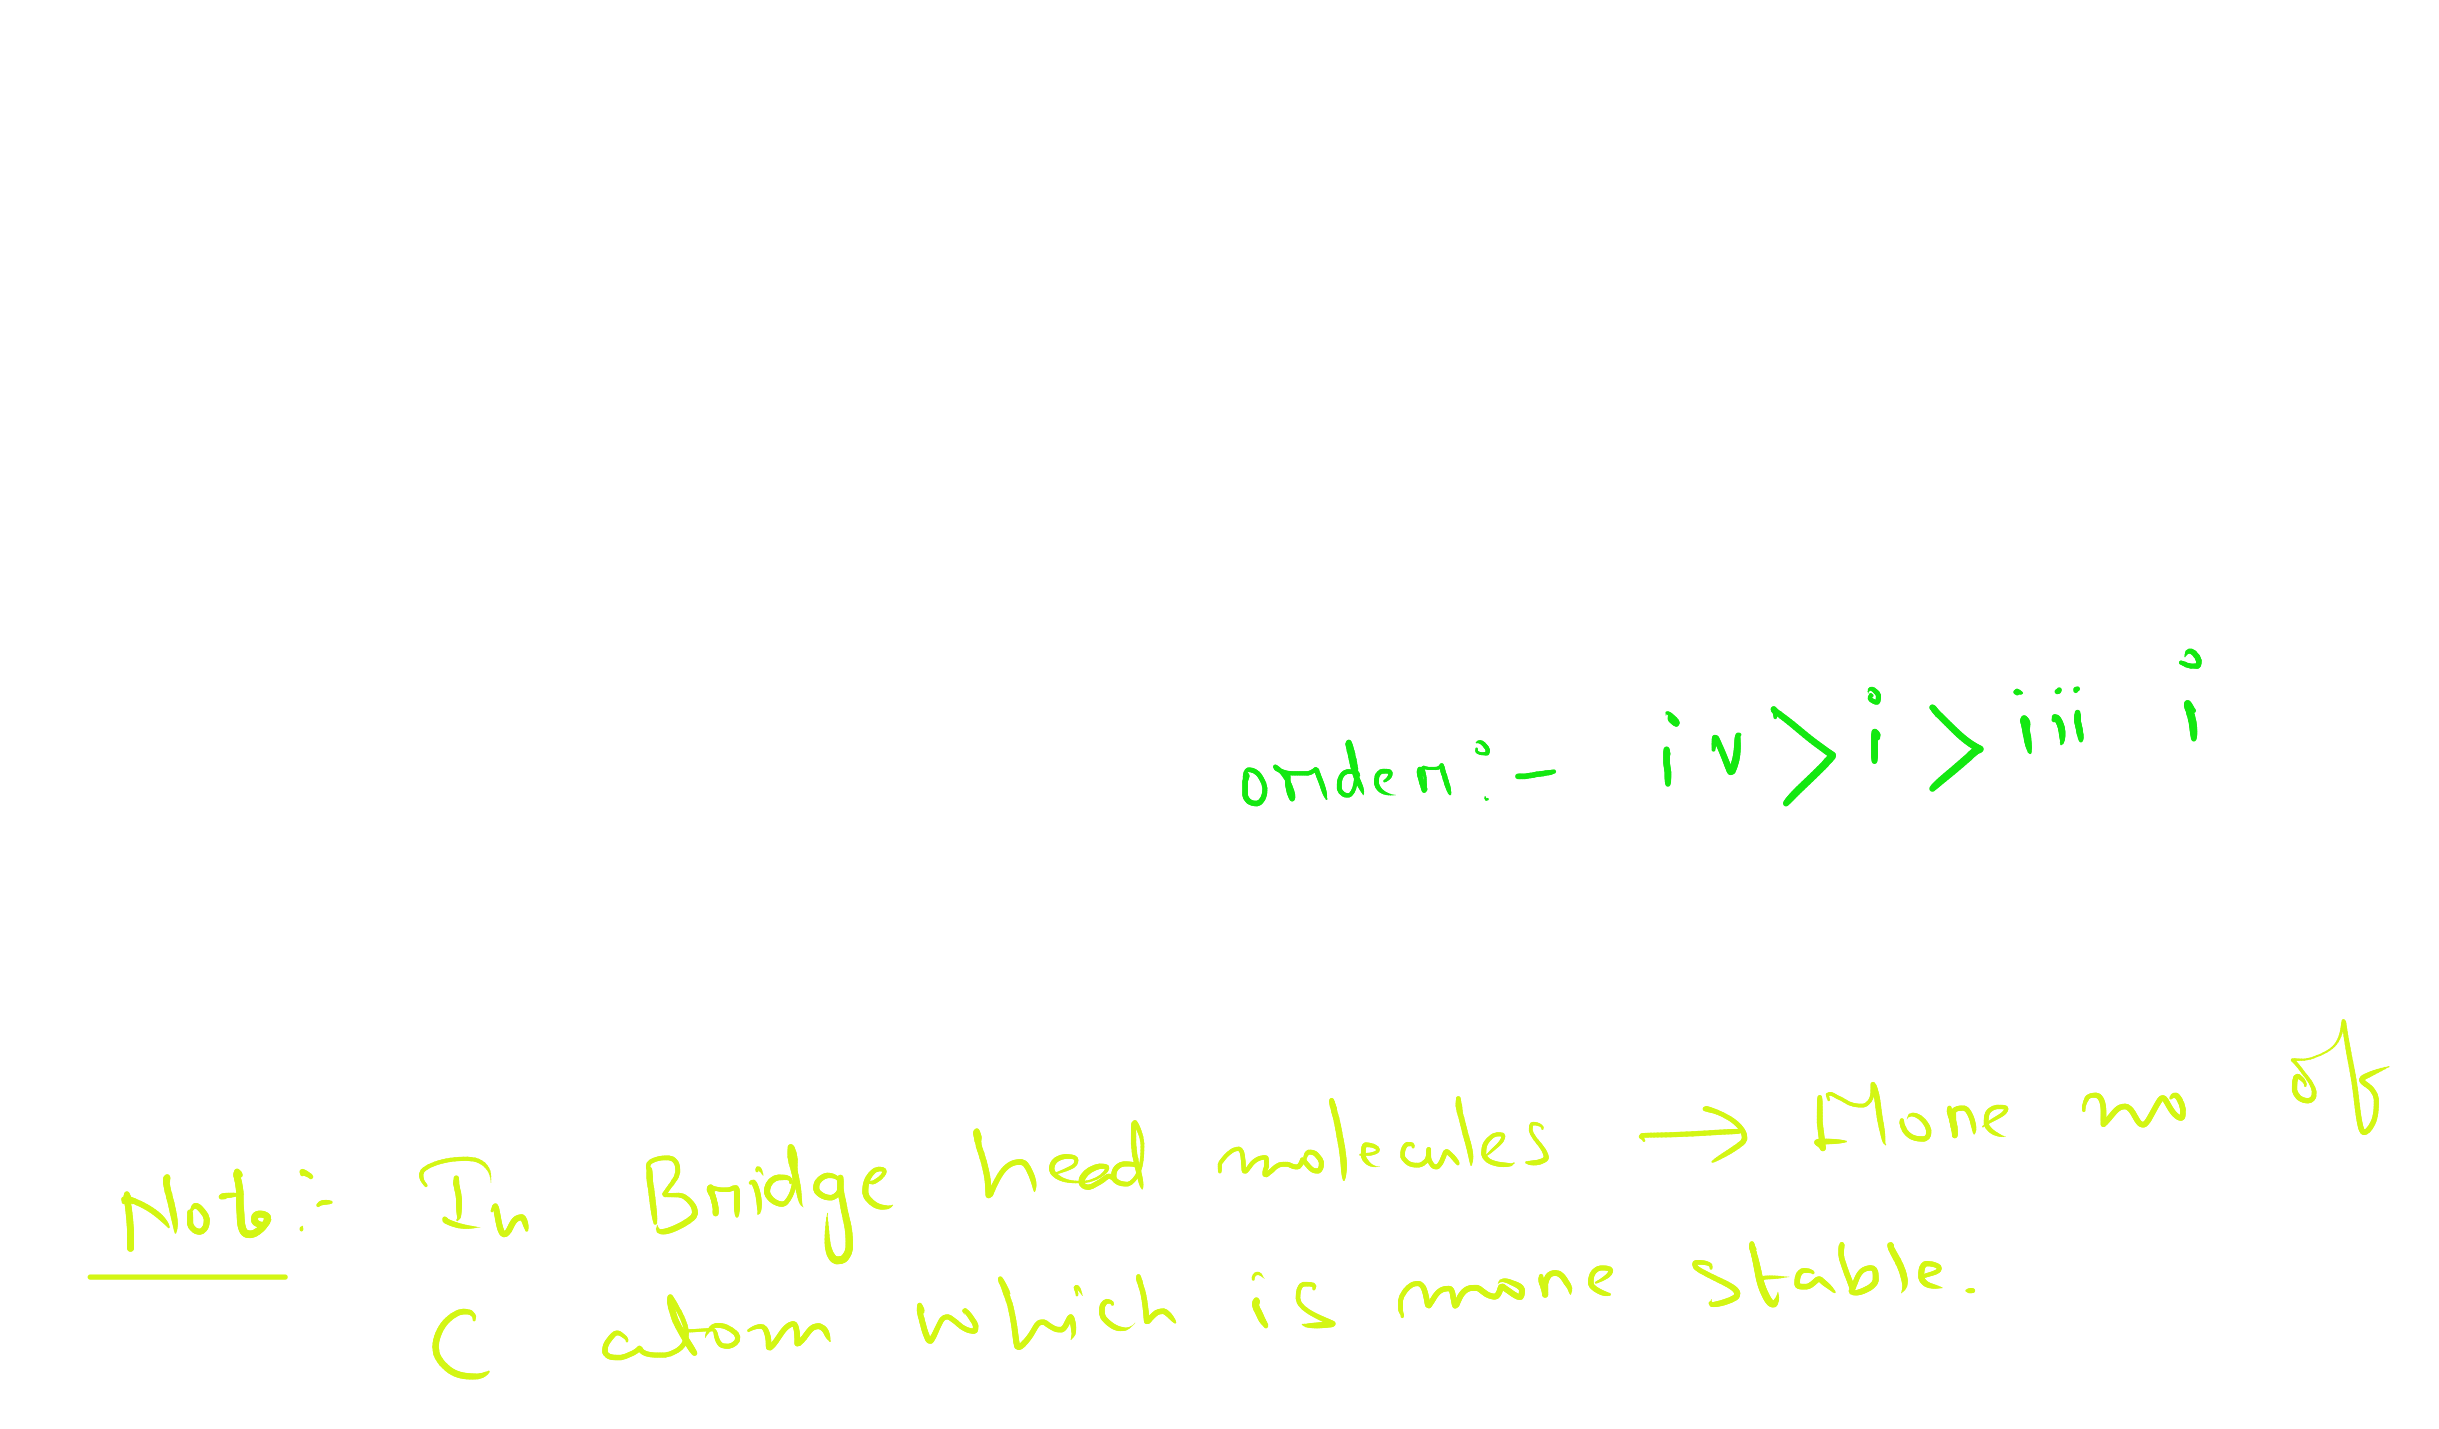 order:- iv > i > iii i
Note:- In Bridge head molecules → More no of
C atom which is more stable.